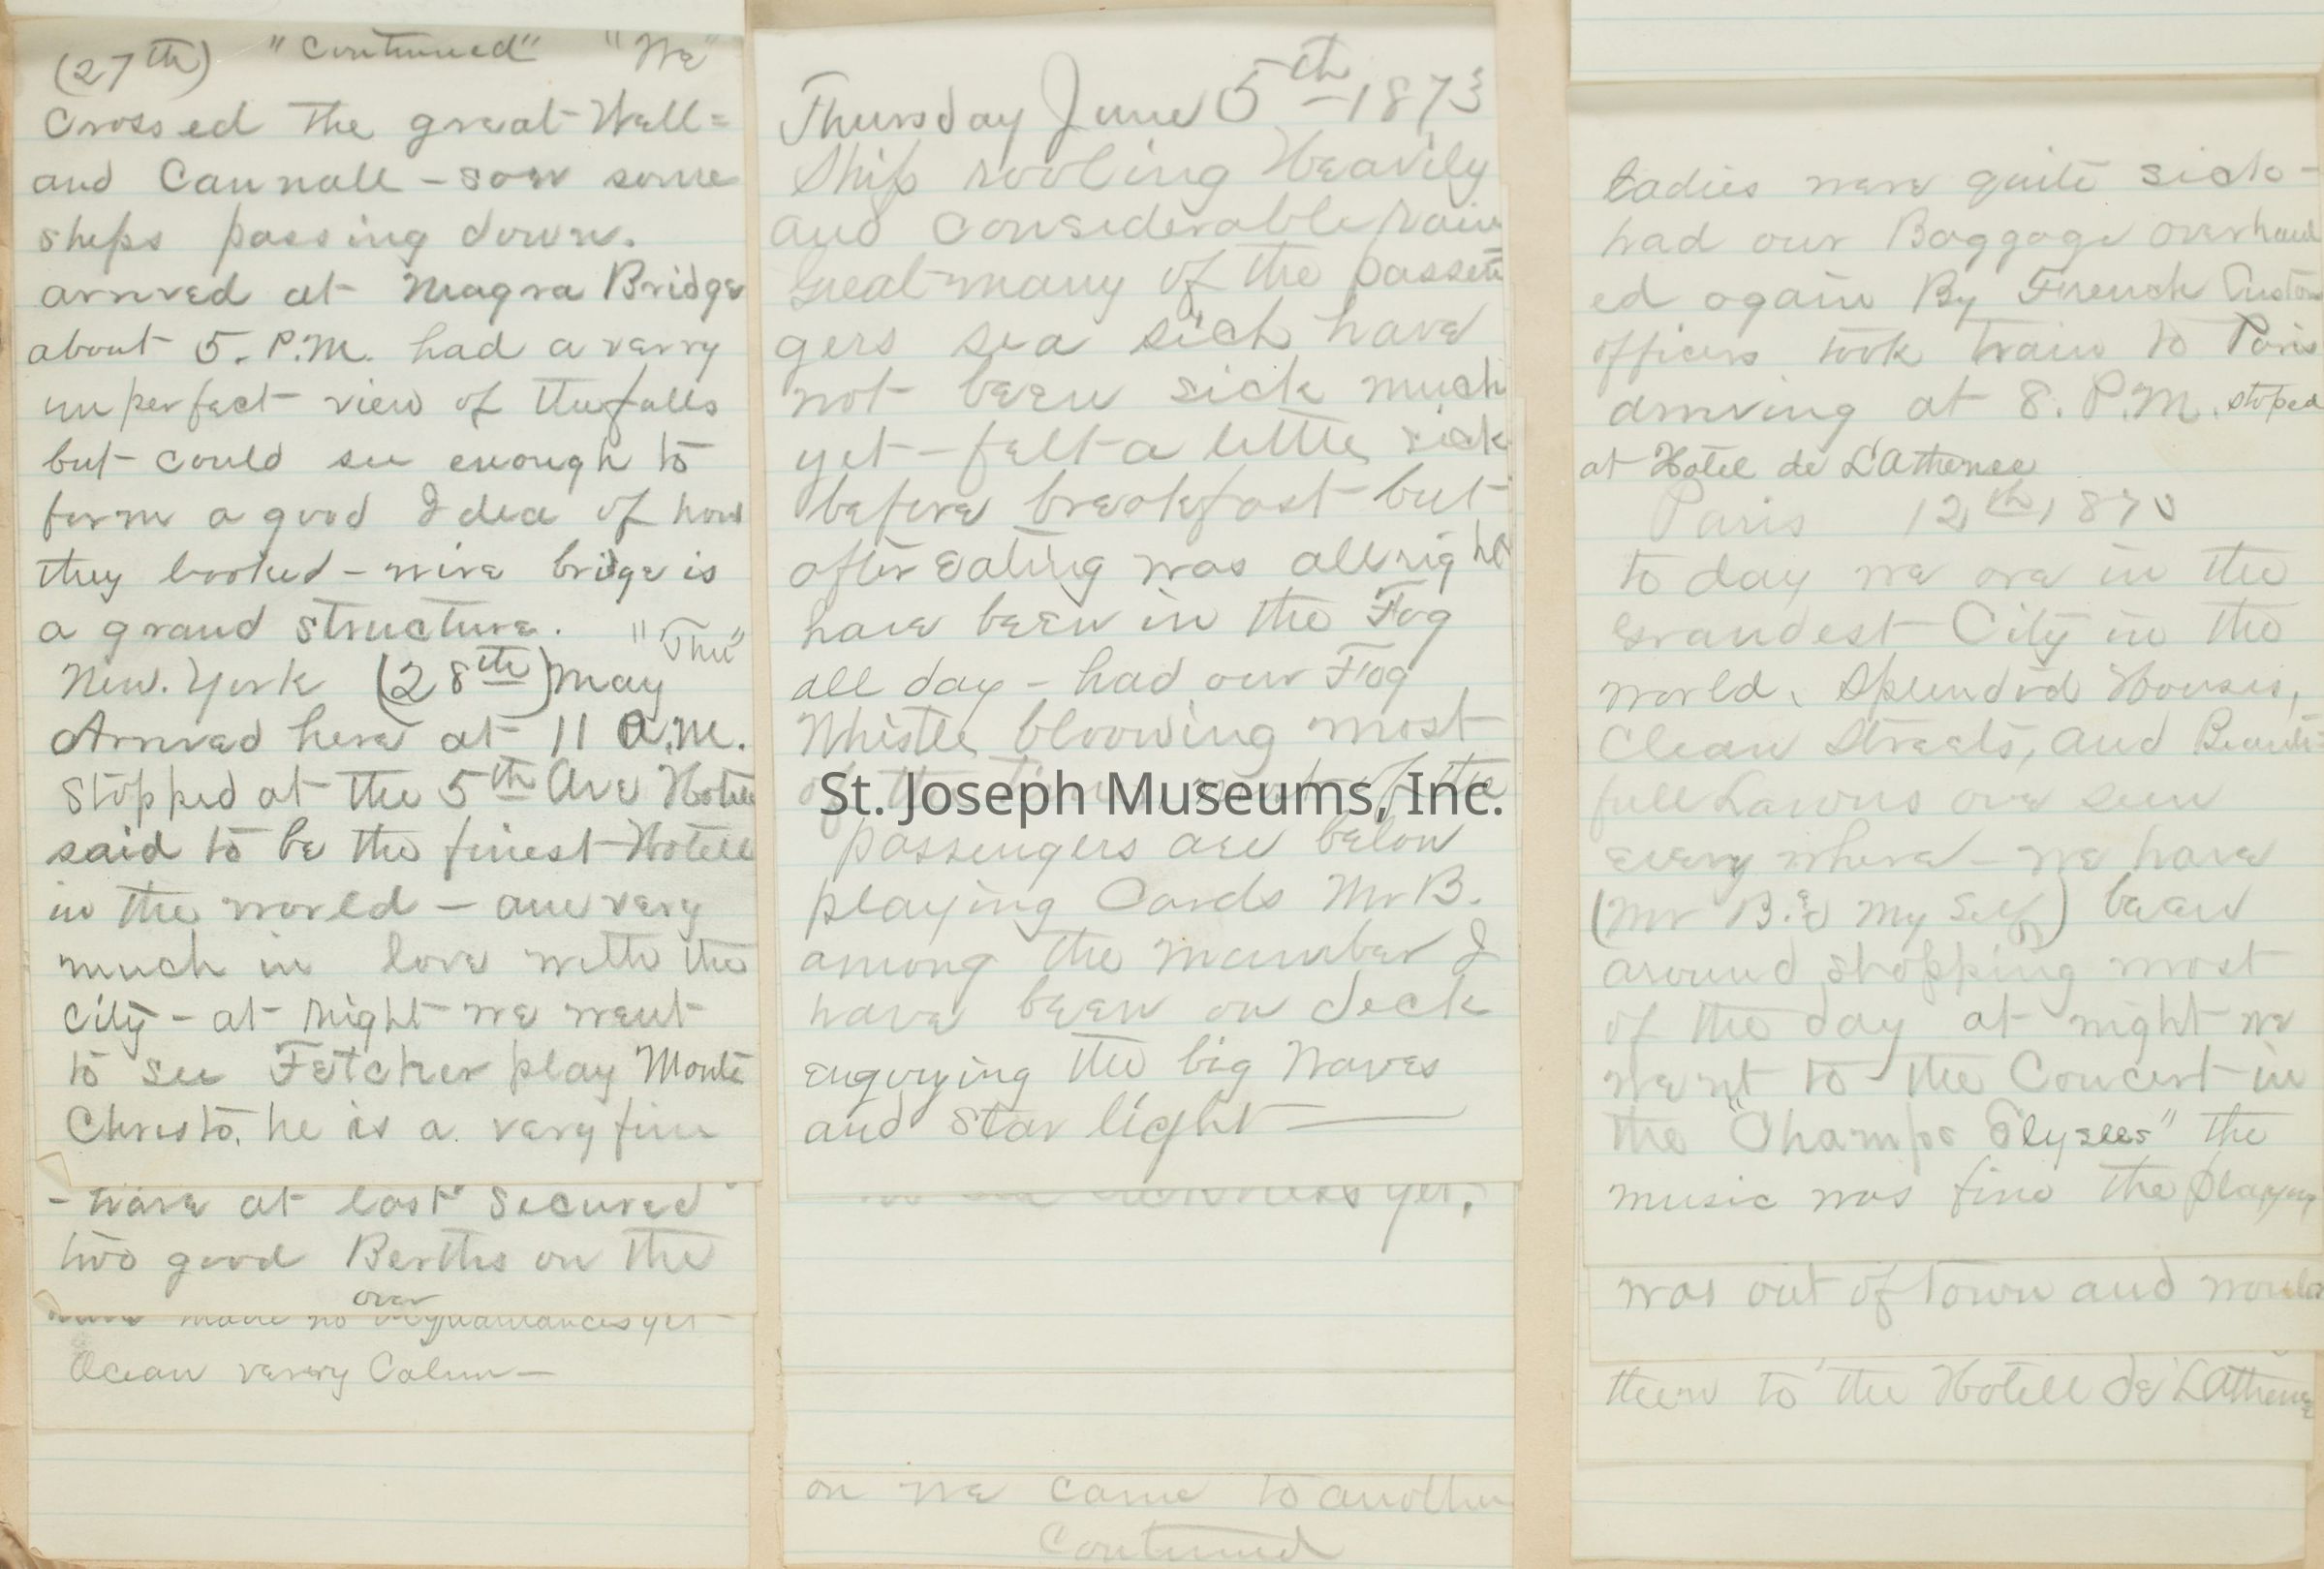 (27th) "Continued" "We"
Crossed the great Wall=
and Cannall - saw some
ships passing down.
arrived at Niagra Bridge
about 5. P.M. had a verry
unperfect view of the falls
but could see enough to
form a good Idea of how
they looked - wire bridge is
a grand structure.
"Thu"
New. York (28th) May
Arrived here at 11 A.M.
Stopped at the 5th Ave Hotell
said to be the finest Hotell
in the world - am very
much in love with the
City - at night we went
to see Fetcher play Monte
Christo, he is a very fine
- have at last secured
two good Berths on the
over
made no acquaintances yet -
Ocean verery Calm -
Thursday June 5th 1873
Ship rooling Heavily
and considerable rain
Great many of the passen
gers sea sick have
not been sick much
yet - felt a little sick
before breakfast but
after eating was all right
have been in the Fog
all day - had our Fog
Whistle bloowing most
of the of the
St. Joseph Museums, Inc.
passengers are below
playing Cards Mr B.
among the number I
have been on deck
engoying the big Waves
and star light -
yet.
on we came to another
Continued
Ladies were quite sick -
had our Baggage overhaul
ed again By French Custom
officers took train to Paris
arriving at 8. P.M. stoped
at Hotel de L'Athenee
Paris 12th 1873
to day we are in the
Grandest City in the
world. Splendid Houses,
Clean Streets, and Beauti
full Lawns are seen
every where - we have
(Mr B. & My Self) been
around shopping most
of the day at night we
went to the Concert in
the "Champs Elysees" the
music was fine the playing
was out of town and would
them to the Hotell de L'Athenee